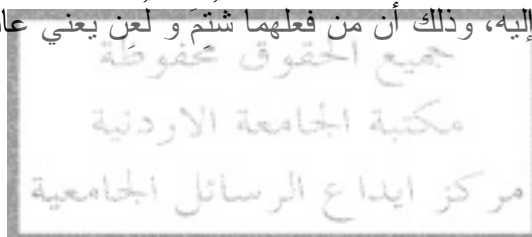 إليه، وذلك أن من فعلهما شُتِمَ و لُعِن يعني
جميع الحقوق محفوظة
مكتبة الجامعة الاردنية
مركز ايداع الرسائل الجامعية